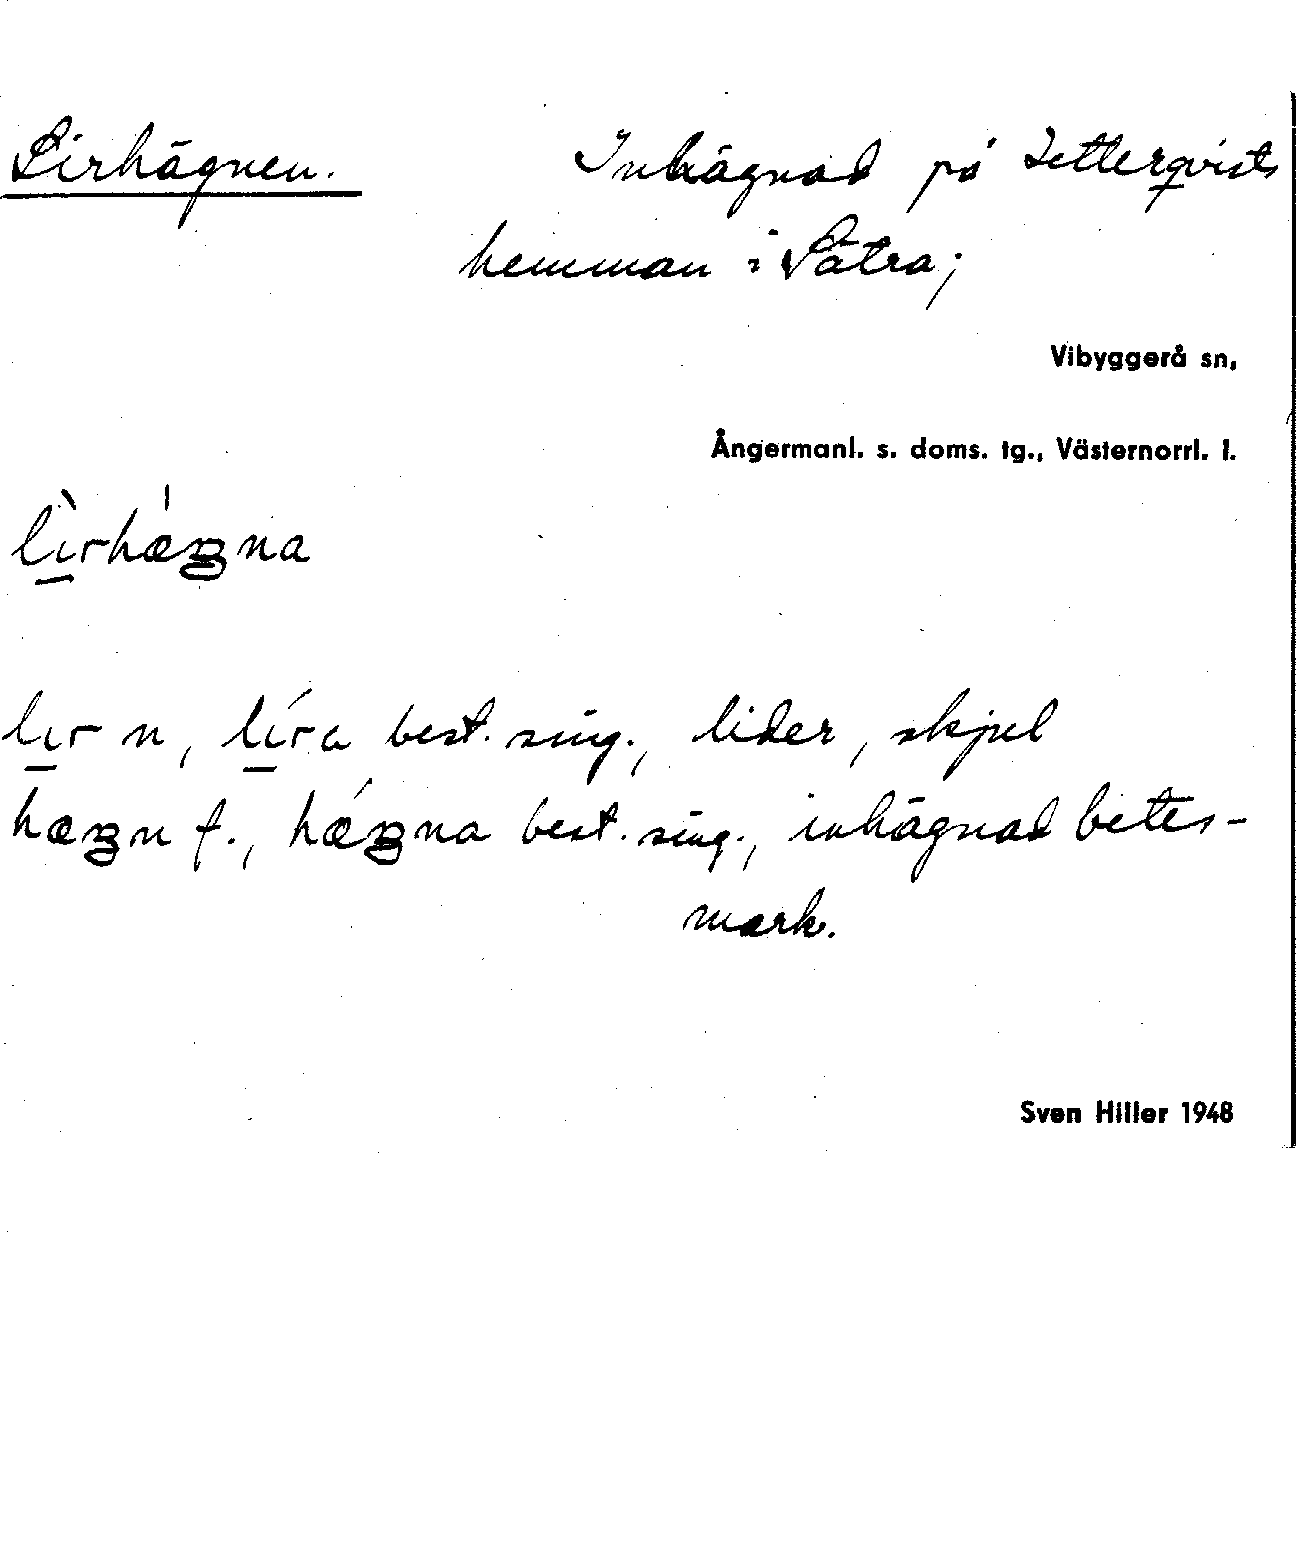 Lirhägnen. Inhägnad på Zetterqvists
hemman i Sätra;
Vibyggerå sn,
Ångermanl. s. doms. tg., Västernorrl. l.
lı̱̀rhǽgna
lı̱r n, lı̱́ra best. sing., lider, skjul
hægn f., hǽgna best. sing., inhägnad betes-
mark.
Sven Hiller 1948